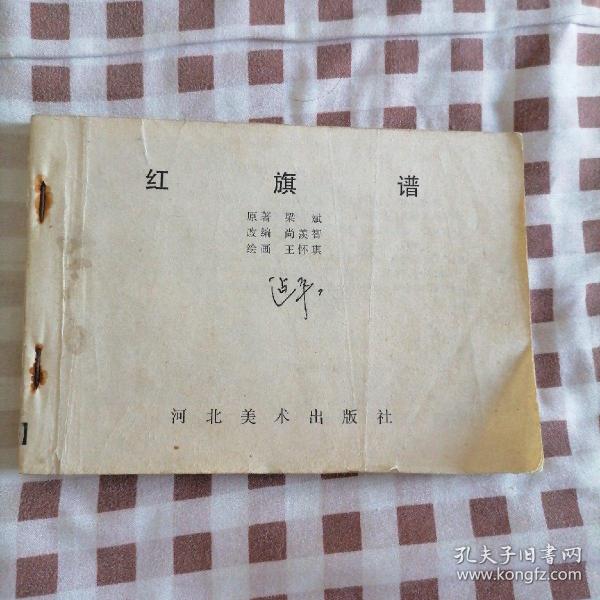 红旗谱
原著 梁斌
改编 尚羡智
绘画 王怀琪
河北美术出版社
孔夫子旧书网
www.kongfz.com